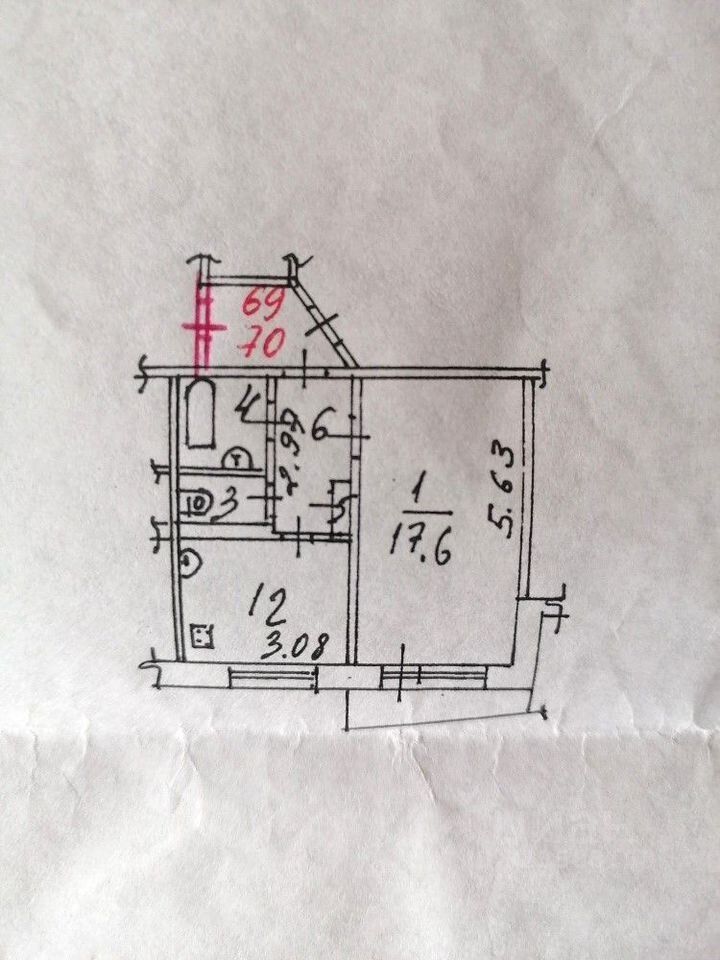 69
70
4
2.97
6
1
17.6
5.63
3
5
12
3.08